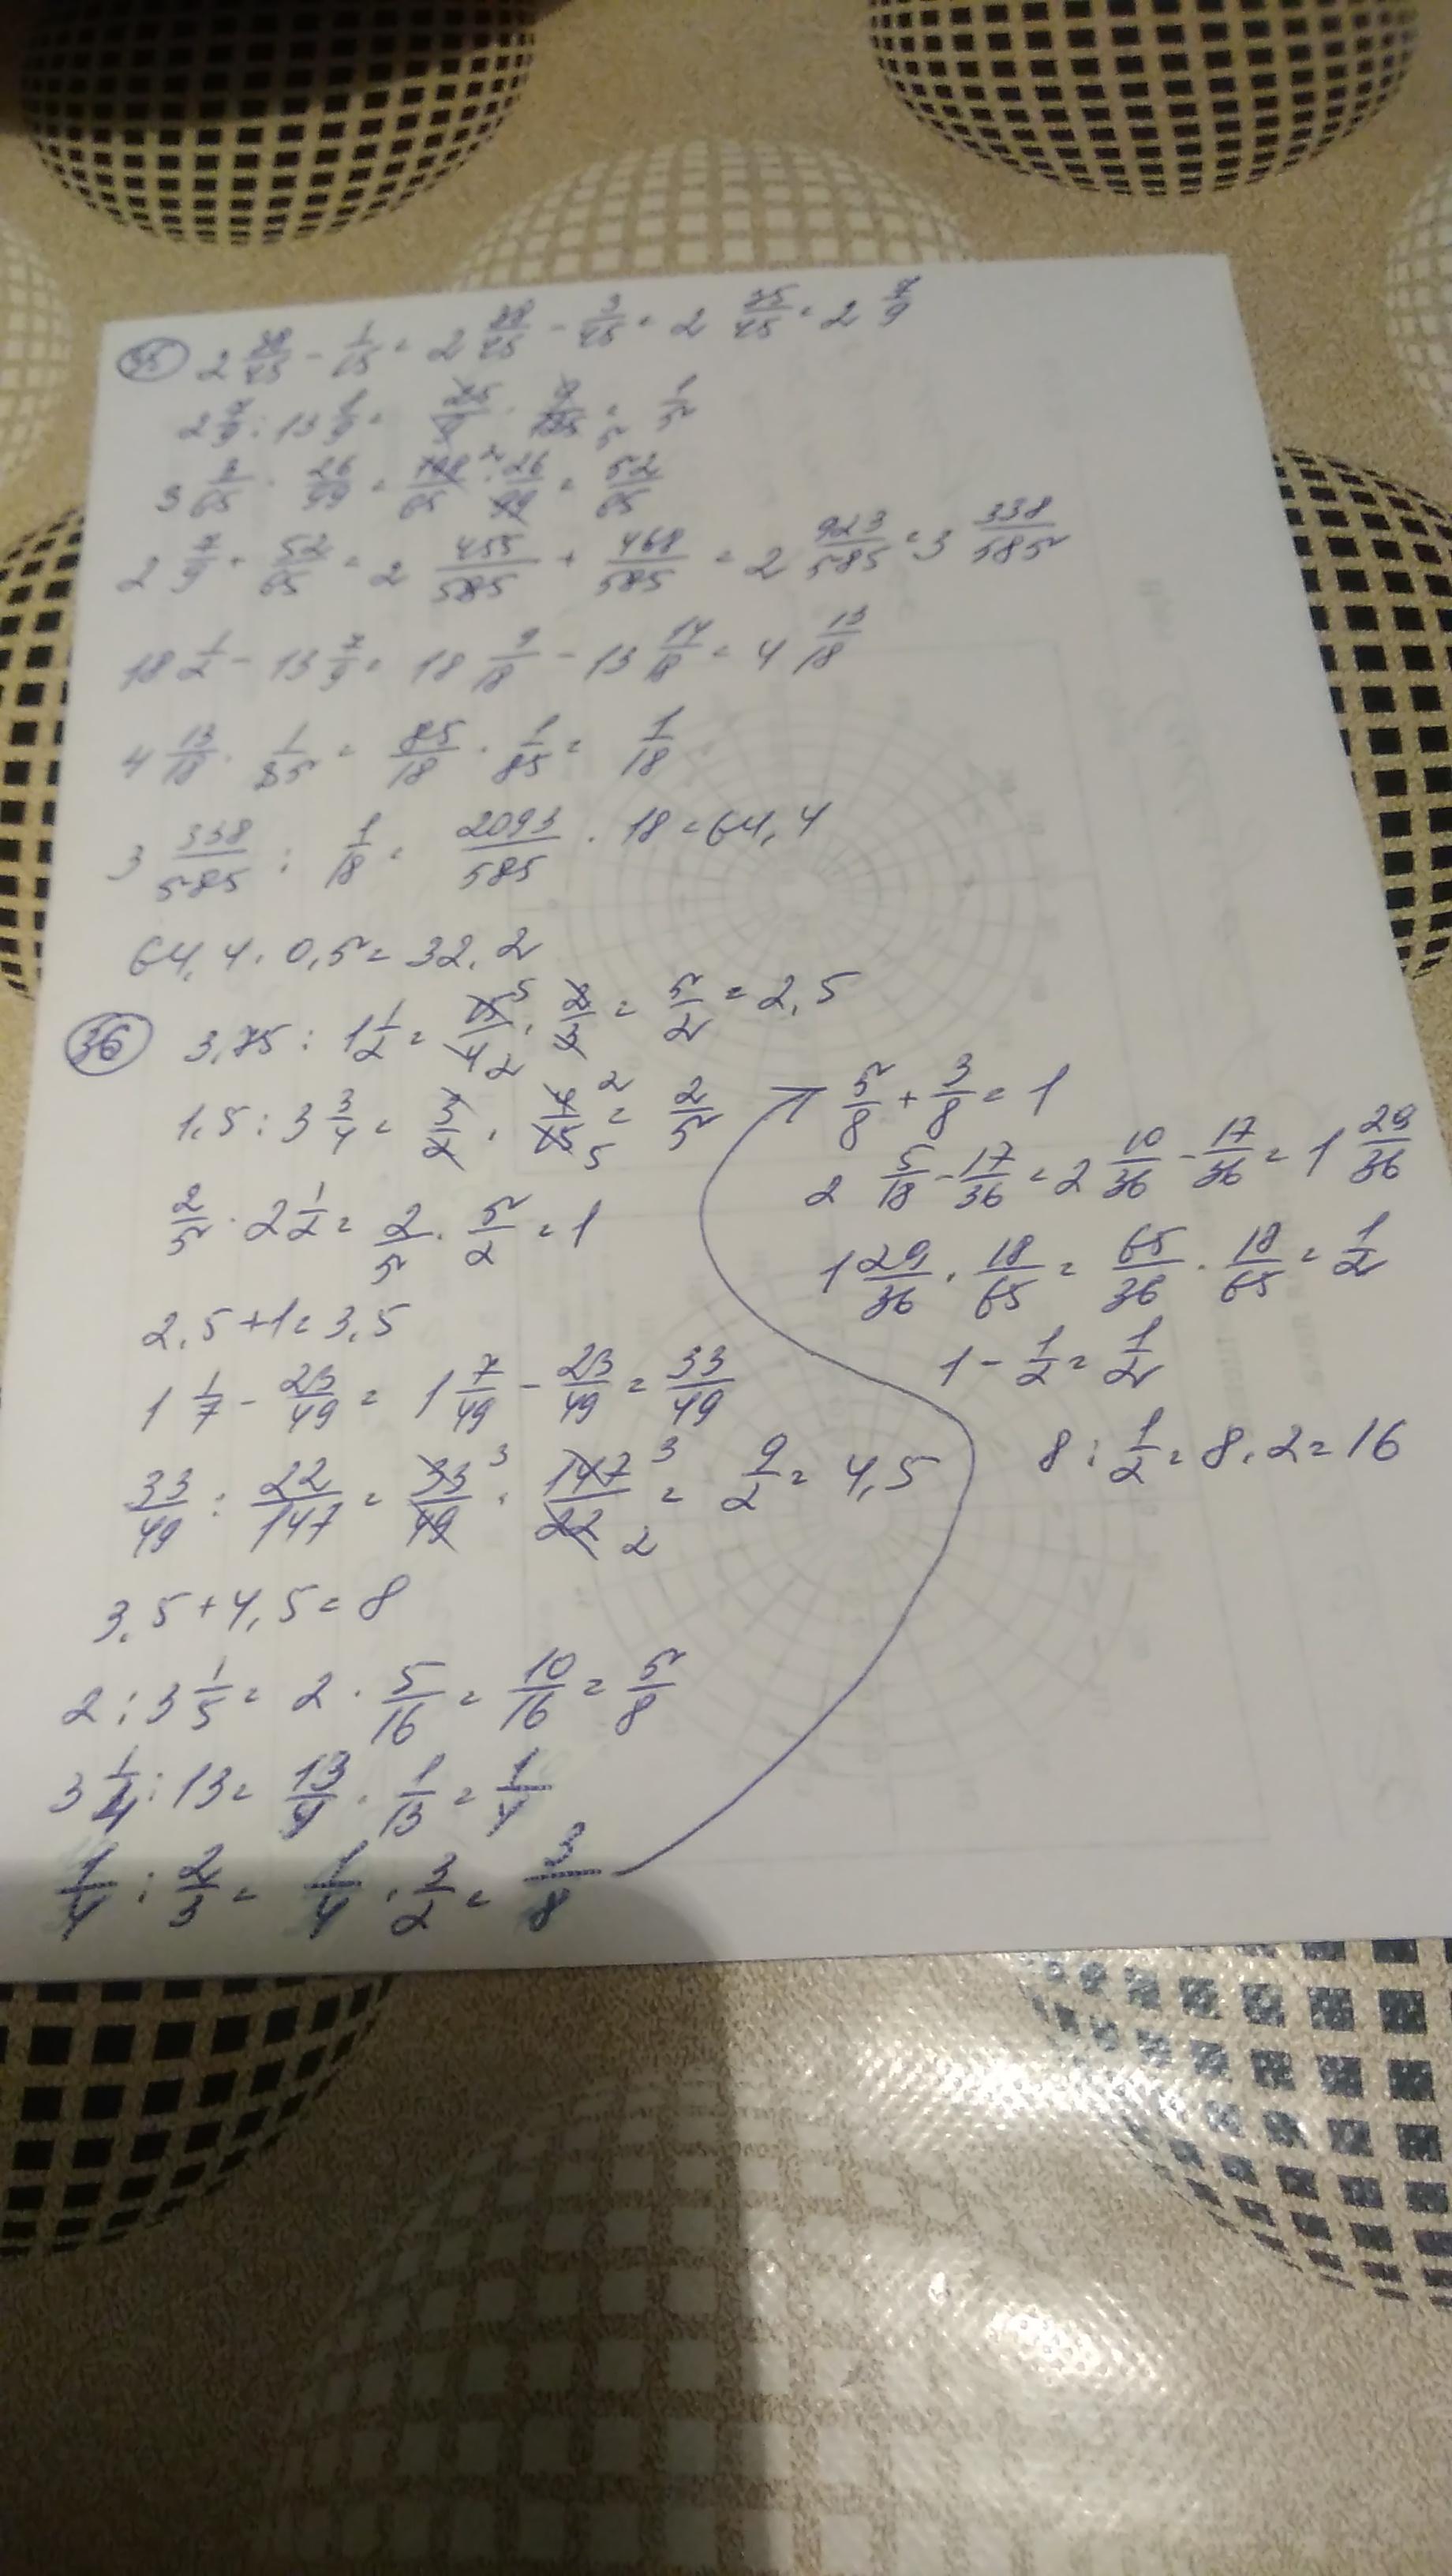 35) 2 38/45 - 1/15 = 2 38/45 - 3/45 = 2 35/45 = 2 7/9
2 7/9 : 13 8/9 = 25/9 · 9/125 5 = 1/5
3 3/65 · 26/99 = 198/65 2 · 26/99 = 52/65
2 7/9 + 52/65 = 2 455/585 + 468/585 = 2 923/585 = 3 338/585
18 1/2 - 13 7/9 = 18 9/18 - 13 14/18 = 4 13/18
4 13/18 · 1/85 = 85/18 · 1/85 = 1/18
3 338/585 : 1/18 = 2093/585 · 18 = 64,4
64,4 · 0,5 = 32,2
36) 3,75 : 1 1/2 = 15/4 5 2 · 2/3 = 5/2 = 2,5
1,5 : 3 3/4 = 3/2 · 4/15 2 5 = 2/5
2/5 · 2 1/2 = 2/5 · 5/2 = 1
2,5 + 1 = 3,5
1 1/7 - 23/49 = 1 7/49 - 23/49 = 33/49
33/49 : 22/147 = 33/49 3 · 147/22 3 2 = 9/2 = 4,5
3,5 + 4,5 = 8
2 : 3 1/5 = 2 · 5/16 = 10/16 = 5/8
3 1/4 : 13 = 13/4 · 1/13 = 1/4
1/4 : 2/3 = 1/4 · 3/2 = 3/8
5/8 + 3/8 = 1
2 5/18 - 17/36 = 2 10/36 - 17/36 = 1 29/36
1 29/36 · 18/65 = 65/36 · 18/65 = 1/2
1 - 1/2 = 1/2
8 : 1/2 = 8 · 2 = 16